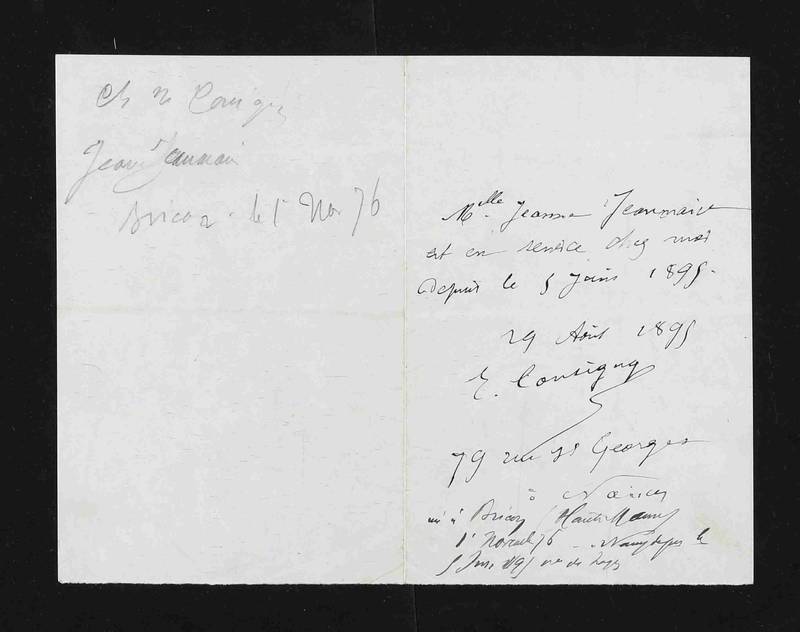 Ch
Jeanne Jeanmaire
Bricon le 1 Nov 76
Mlle Jeanne Jeanmaire
est en service chez moi
depuis le 5 Juin 1895.
29 Août 1895
E. Consigny
79 rue St Georges
à Nancy
née à Bricon (Haute Marne)
1 Novemb 76 Nancy depuis le
5 Juin 1895